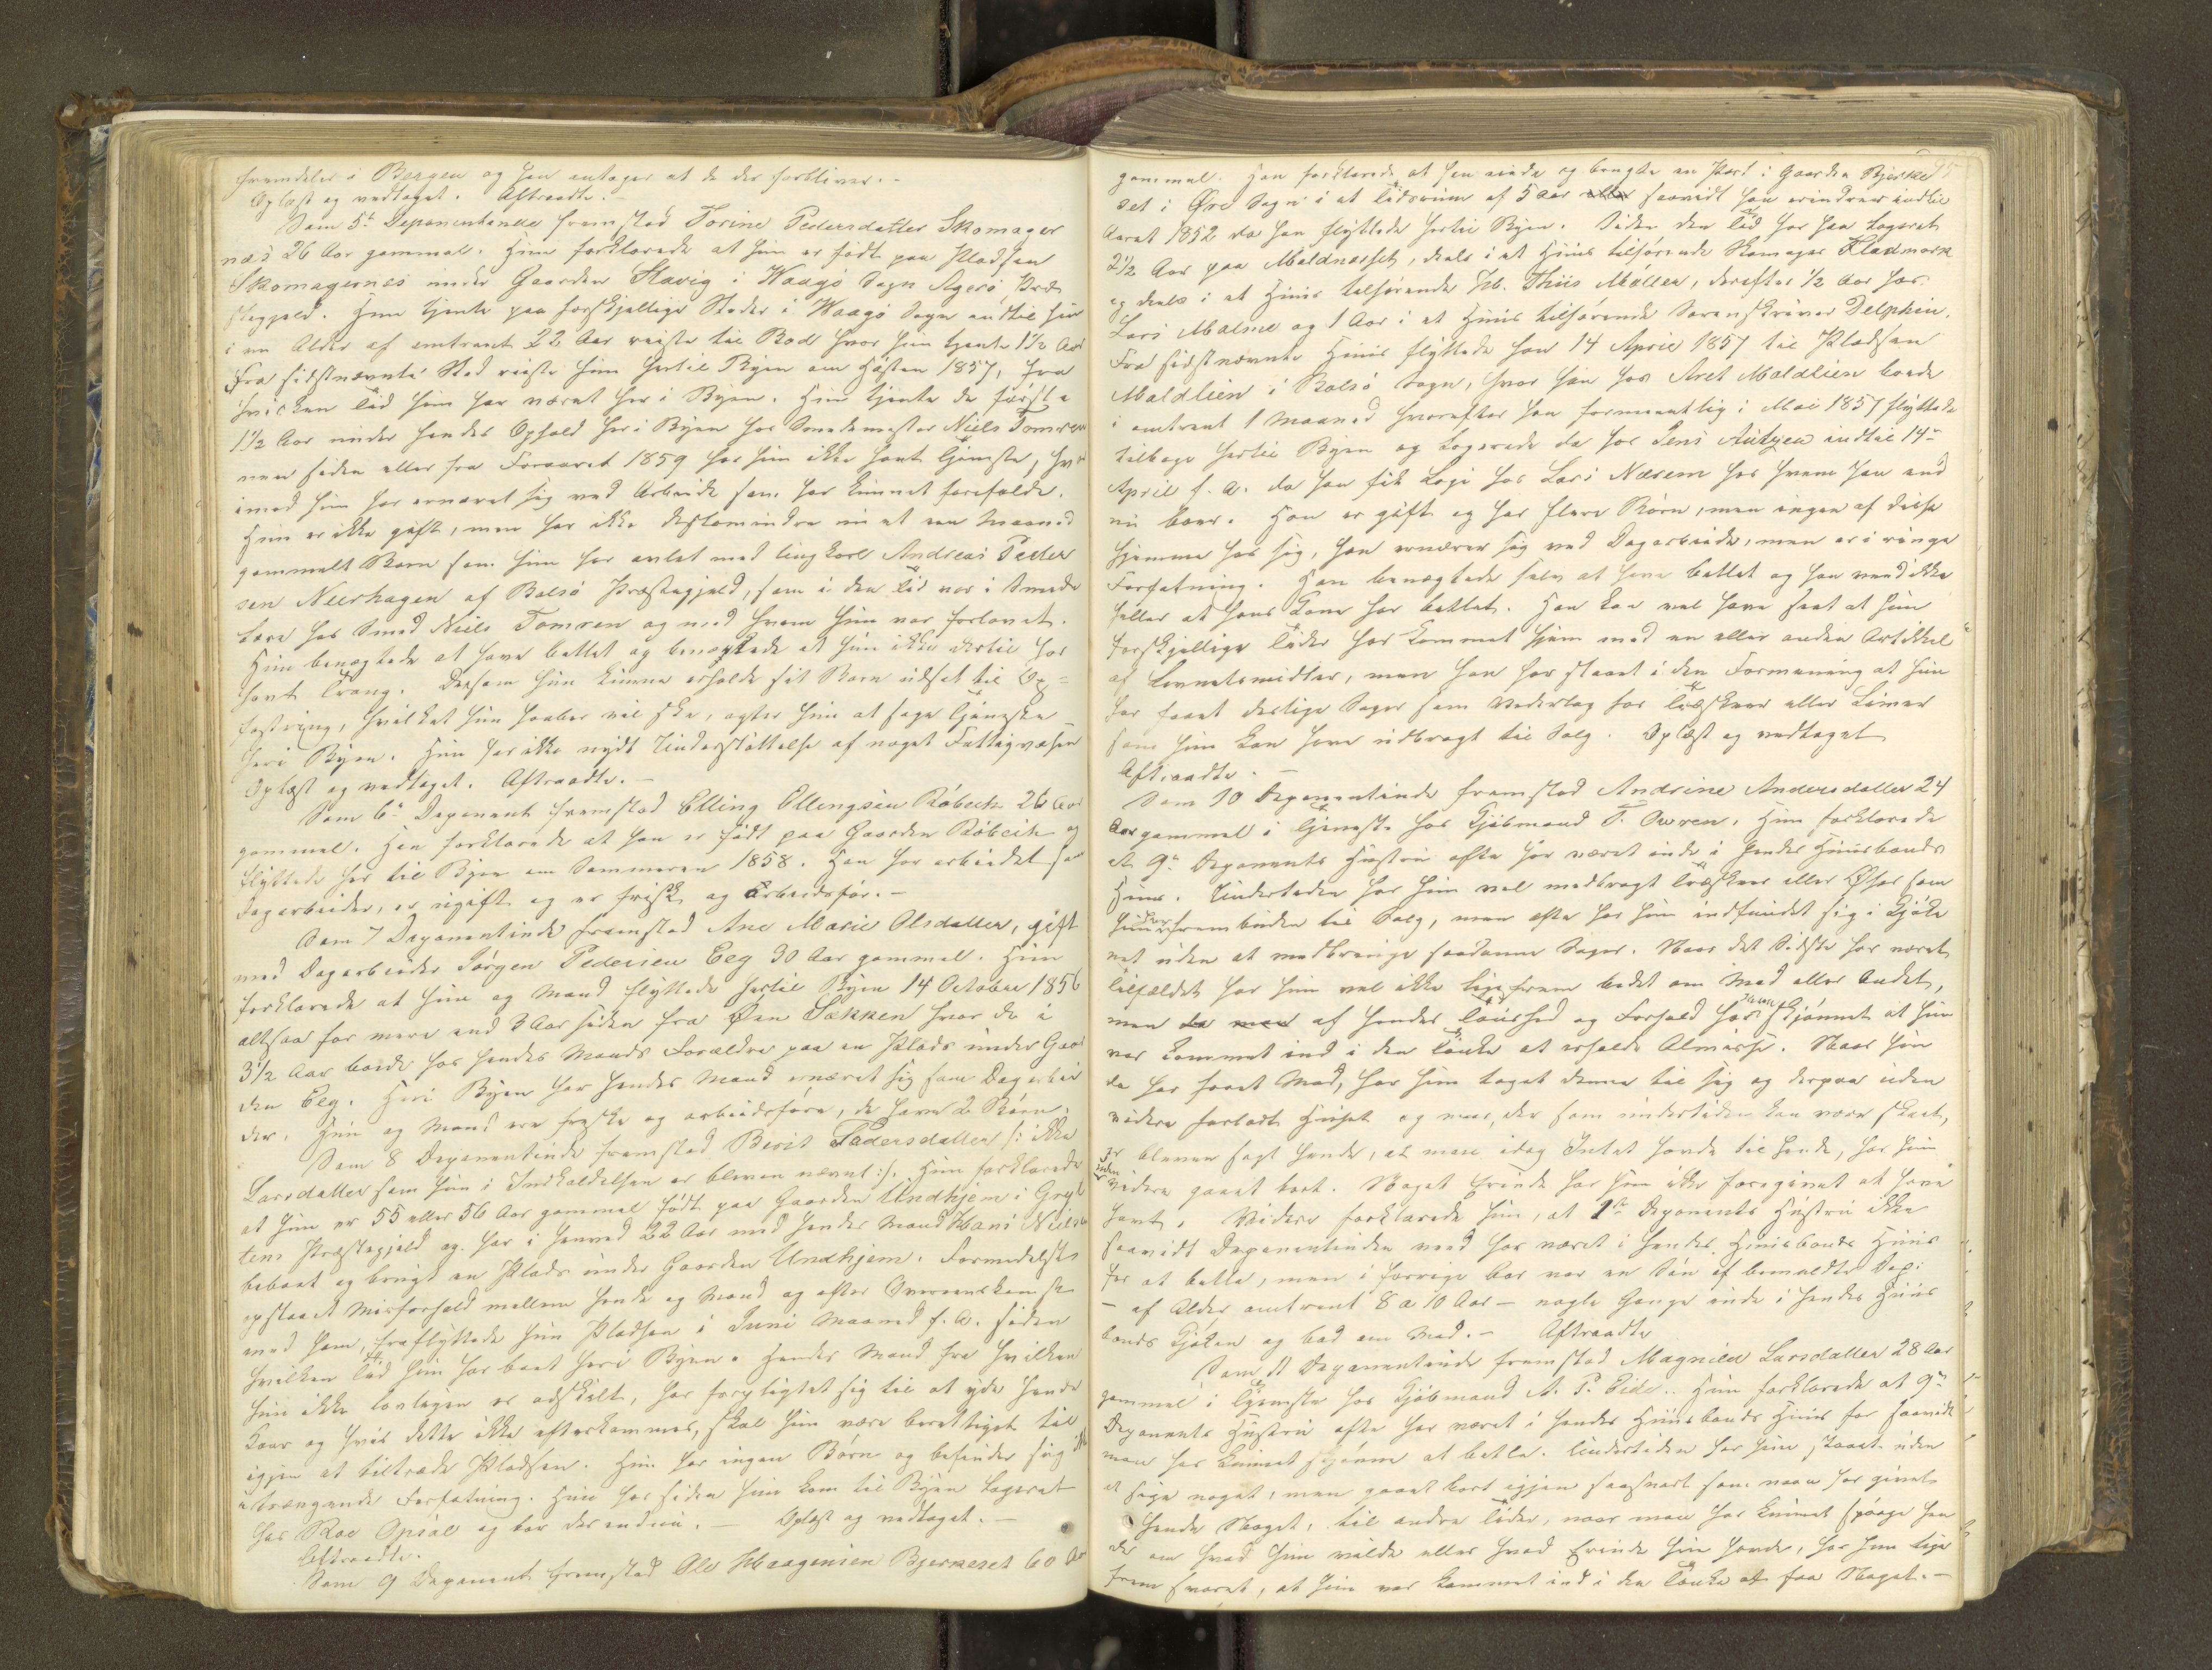 fremdeles i Bergen og han antager at de der forbliver.-
Oplæst og vedtaget. Aftraadte.-
Som 5te Deponentinde fremstod Torine Pedersdatter Skomager
næs 26 Aar gammel. Hun forklarede at hun er født paa Pladsen
Skomagernæs under Gaarden Stavig i Waagø Sogn Agerø Præ
stegjeld. Hun tjente paa forskjellige Steder i Waagø Sogn indtil hun
i en Alder af omtrent 22 Aar reiste til Bod hvor hun tjente 1½ Aar
Fra sidstnævnte Sted reiste hun hertil Byen om Høsten 1857, fra
hvilken Tid hun har været her i Byen. Hun tjente de første
1½ Aar under hendes Ophold her i Byen hos Smedemester Niels Tomren
men siden eller fra Foraaret 1859 har hun ikke havt Tjeneste, hvor
imod hun har ernæret sig ved Arbeide som har kunnet forefalde.
Hun er ikke gift, men har ikke destomindre nu et en Maaned
gammelt Barn som hun har avlet med Ungkarl Andreas Peder
sen Neerhagen af Bolsø Præstegjeld, som i den Tid var i Smede
lære hos Smed Niels Tomren og med hvem hun var forlovet.
Hun benægtede at have betlet og benægtede at hun ikke dertil har
havt Trang. Dersom hun kunne erholde sit Barn udsat til Op=
fostring, hvilket hun haaber vil ske, agter hun at søge Tjeneste
her i Byen. Hun har ikke nydt Understøttelse af noget Fattigvæsen
Oplæst og vedtaget. Aftraadte.-
Som 6te Deponent fremstod Elling Ellingsen Røbech 26 Aar
gammel. Han forklarede at han er født paa Gaarden Røbech og
flyttede her til Byen om Sommeren 1858. Han har arbeidet som
Dagarbeider, er ugift og er frisk og arbeidsfør.-
Som 7 Deponentinde fremstod Ane Marie Olsdatter, gift
med Dagarbeider Jørgen Pedersen Eeg 30 Aar gammel. Hun
forklarede at hun og Mand flyttede hertil Byen 14 October 1856
altsaa for mere end 3 Aar siden fra Øen Sækken hvor de i
3½ Aar boede hos hendes Mands Forældre paa en Plads under Gaar
den Eeg. Her i Byen har hendes Mand ernæret sig som Dagarbei
der. Hun og Mand ere friske og arbeidsføre, de have 2 Børn.
Som 8 Deponentinde fremstod Berit Pedersdatter /: ikke
Larsdatter som hun i Indkaldelsen er bleven nævnt :/. Hun forklarede
at hun er 55 eller 56 Aar gammel født paa Gaarden Undhjem i Gryt
tens Præstegjeld og har i henved 22 Aar med hendes Mand Hans Nielsen
beboet og brugt en Plads under Gaarden Undhjem. Formedelst
opstaaet Misforhold mellem hende og Mand og efter Overenskomst
med ham, fraflyttede hun Pladsen i Juni Maaned f. A. siden
hvilken Tid hun har boet her i Byen. Hendes Mand fra hvilken
hun ikke lovligen er adskilt, har forpligtet sig til at yde hende
Kaar og hvis dette ikke efterkommes, skal hun være berettiget til
igjen at tiltræde Pladsen. Hun har ingen Børn og befinder sig ikke
i trængende Forfatning. Hun har siden hun kom til Byen logeret
hos Roe Opsal og bor der endnu.- Oplæst og vedtaget.-
Aftraadte.
Som 9 Deponent fremstod Ole Haagensen Bjerkeset 60 Aar
95
gammel. Han forklarede at han eiede og brugte en Part i Gaarden Bjerke
set i Øre Sogn i et Tidsrum af 5 Aar saavidt han erindrer indtil
Aaret 1852 da han flyttede hertil Byen. Siden den Tid har han logeret
2½ Aar paa Moldnæsset, deels i et Huus tilhørende Skomager Kladmark
og deels i et Huus tilhørende Hr. Thiis Møller, derefter ½ Aar hos
Lars Malme og 1 Aar i et Huus tilhørende Sorenskriver Delphin.
Fra sidstnævnte Huus flyttede han 14 April 1857 til Pladsen
Moldelien i Bolsø Sogn, hvor han hos Aret Moldelien boede
i omtrent 1 Maaned hvorefter han formeentlig i Mai 1857 flyttede
tilbage hertil Byen og logerede da hos Jens Aukjen indtil 14de
April f. A. da han fik Logi hos Lars Næsem hos hvem han end
nu boer. Han er gift og har flere Børn, men ingen af disse
hjemme hos sig, han ernærer sig ved Dagarbeide, men er i ringe
Forfatning. Han benægtede selv at have betlet og han veed ikke
heller at hans Kone har betlet. Han kan vel have seet at hun
forskjellige Tider har kommet hjem med en eller anden Artikkel
af Levnetsmidler, men han har staaet i den Formening at hun
har faaet deslige Sager som Vederlag for Træskeer eller Limer
som hun kan have udbragt til Salg. Oplæst og vedtaget
Aftraadte.-
Som 10 Deponentinde fremstod Andrine Andersdatter 24
Aar gammel i Tjeneste hos Kjøbmand T. Owren. Hun forklarede
at 9de Deponents Hustru ofte har været inde i hendes Huusbonds
Huus. Undertiden har hun vel medbragt Træskeer eller Øser som
hun har frembuden til Salg, men ofte har hun indfundet sig i Kjøke
net uden at medbringe saadanne Sager. Naar det Sidste har været
Tilfældet har hun vel ikke ligefrem bedet om Mad eller Andet,
men af hendes Taushed og Forhold har man skjønnet at hun
var kommet ind i den Tanke at erholde Almisse. Naar hun
da har faaet Mad, har hun taget denne til sig og derpaa uden
videre forladt Huset og naar, der som undertiden kan være skeet,
er bleven sagt hende, at man idag Intet havde til hende, har hun
uden videre gaaet bort. Noget Erinde har hun ikke foregivet at have
havt. Videre forklarede hun, at 1ste Deponents Hustru ikke
saavidt Deponentinden veed har været i hendes Huusbonds Huus
for at betle, men i forrige Aar var en Søn af bemeldte Dep:
- af Alder omtrent 8 a 10 Aar - nogle Gange inde i hendes Huus
bonds Kjøken og bad om Mad.- Aftraadte
Som 11 Deponentinde fremstod Magnild Larsdatter 28 Aar
gammel i Tjeneste hos Kjøbmand A. P. Eide. Hun forklarede at 9de
Deponents Hustru ofte har været i hendes Huusbonds Huus for saavidt
man har kunnet skjønne at betle. Undertiden har hun staaet uden
at sige noget, men gaaet bort igjen saasnart som man har givet
hende Noget, til andre Tider, naar man har kunnet spørge hen
de om hvad hun vilde eller hvad Erinde hun havde, har hun lige
frem svaret, at hun var kommet ind i den Tanke at faa Noget.-